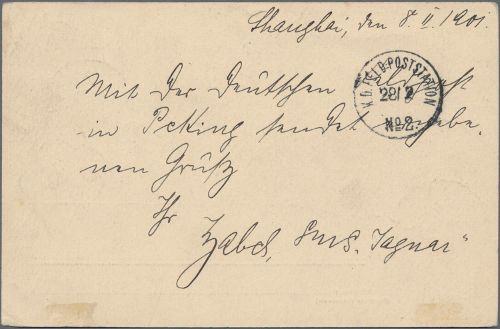 Shanghai, den 8. II. 1901.
K.D. FELD-POSTSTATION
28/2
No 2.
Mit der deutschen Feldpost
in Peking sendet ergebe-
nen Gruß
Ihr
Zabel, SMS. "Jaguar"